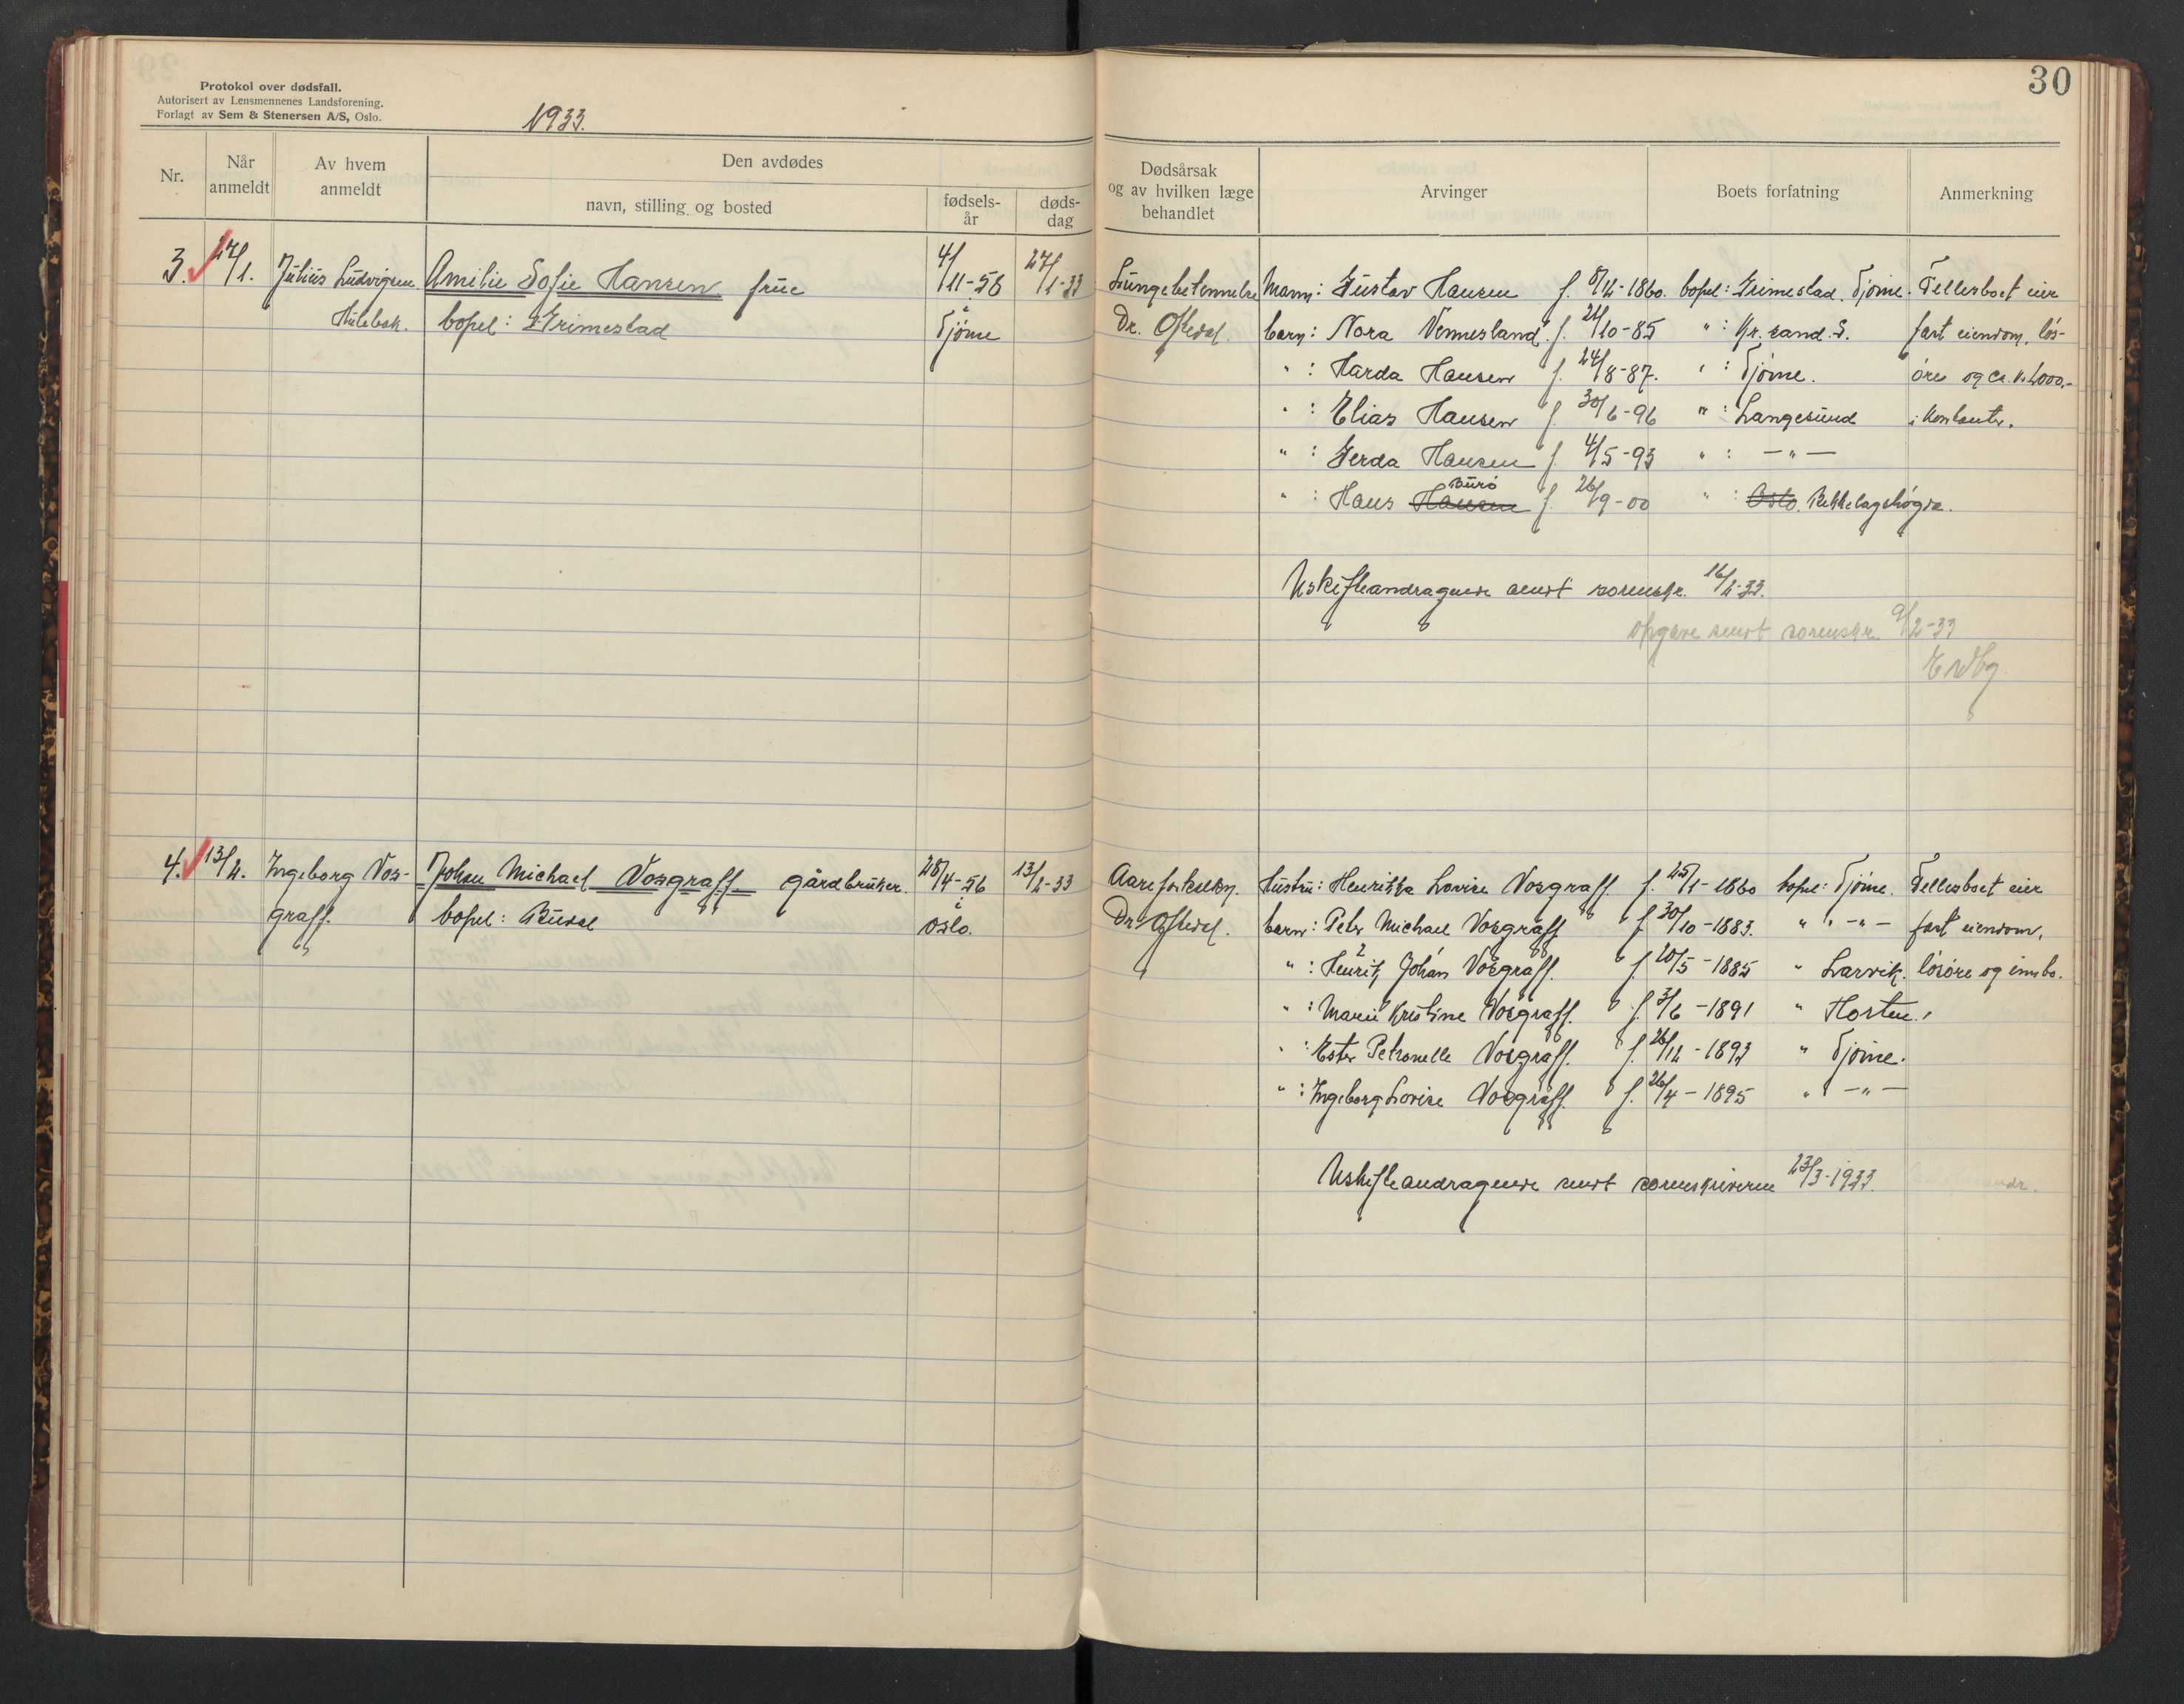 Protokol over dødsfall.
Autorisert av Lensmennenes Landsforening.
Forlagt av Sem & Stenersen A/S, Oslo.
1933.
30
Nr.
Når anmeldt
Av hvem anmeldt
Den avdødes
navn, stilling og bosted
fødsels-år
døds-dag
Dødsårsak og av hvilken læge behandlet
Arvinger
Boets forfatning
Anmerkning
3. 27/1. Julius Ludvigsen Amilie Sofie Hansen frue 4/11-56 27/1-33 Lungebetennelse Mann: Gustav Hansen f. 8/12-1860. bopel: Grimestad. Tjøme. Fellesboet eier
Hulebak. bopel: Grimestad i Tjøme Dr. Oftedal. barn: Nora Vennesland f. 21/10-85 " : Kr.sand. S. fast eiendom, løs-
" : Harda Hansen f. 24/8-87. " : Tjøme. øre og ca. kr. 2000.-
" : Elias Hansen f. 30/6-96 " : Langesund i kontanter.
" : Gerda Hansen f. 4/5-93 " : -"-
" : Hans Hansen Burø f. 26/9-00 " : Oslo. Bekkelagshøgda.
Uskifteandragende sendt sorenskr. 16/2-33.
Opgave sendt sorenskr. 9/2-33
4. 13/2. Ingeborg Vos- Johan Michael Vosgraff gårdbruker. 28/4-56 13/2-33 Aareforkalkn. Hustru: Henrikka Lovise Vosgraff f. 25/1-1860 bopel: Tjøme. Fellesboet eier
graff. bopel: Budal i Oslo. Dr Oftedal. barn: Peter Michael Vosgraff f. 30/10-1883. " " -"- fast eiendom,
" : Henrik Johan Vosgraff. f. 20/5-1885 " Larvik. løsøre og innbo.
" : Marie Kristine Vosgraff. f. 3/6-1891 " Horten.
" : Ester Petronelle Vosgraff. f. 26/12-1893 " Tjøme.
" : Ingeborg Lovise Vosgraff. f. 26/4-1895 " -"-
Uskifteandragende sendt sorenskriveren 23/3-1933.